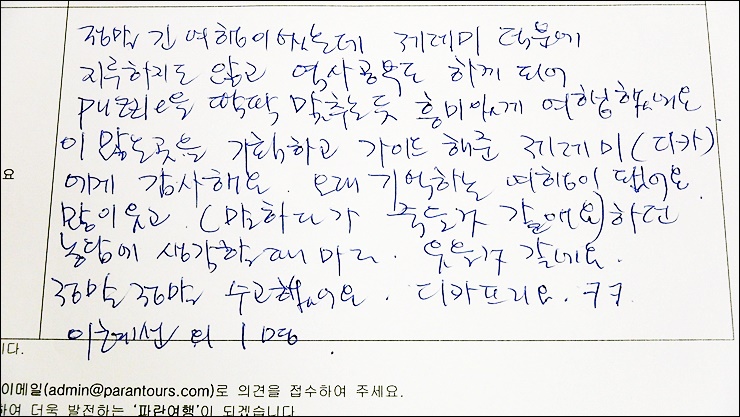 정말 긴 여행이었는데 제레미 덕분에
지루하지도 않고 역사공부도 하게 되어
puzzle을 딱딱 맞추는듯 흥미있게 여행했네요
이 많은곳을 기획하고 가이드 해준 제레미(디카)
요
에게 감사해요. 오래 기억하는 여행이 됐어요
많이 웃고. (말하다가 죽을거 같애요)하던
농담에 생각할때 마다. 웃을거 같네요.
정말 정말 수고했어요. 디카프리오. ㅋㅋ
이혜선 외 1명
니다.
이메일(admin@parantours.com)로 의견을 접수하여 주세요.
하여 더욱 발전하는 '파란여행'이 되겠습니다